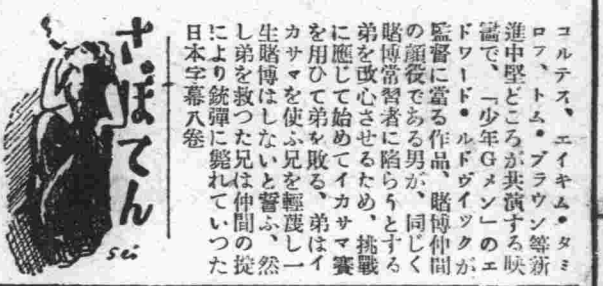 コルテス、エイキム・タミ
ロフ、トム・ブラウン等新
進中堅どころが共演する映
畫で、「少年Gメン」のエ
ドワード・ルドヴイックが
監督に當る作品、賭博仲間
の顔役である男が、同じく
賭博常習者に陥らうとする
弟を改心させるため、挑戰
に應じて始めてイカサマ賽
を用ひて弟を敗る、弟はイ
カサマを使ふ兄を輕蔑し一
生賭博はしないと誓ふ、然
し弟を救つた兄は仲間の掟
により銃彈に斃れていつた
日本字幕八卷
さぼてん
sei